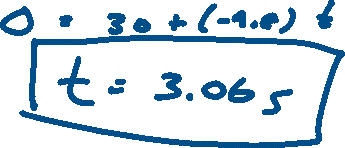 0 = 30 + (-9.8) t
t = 3.06 s